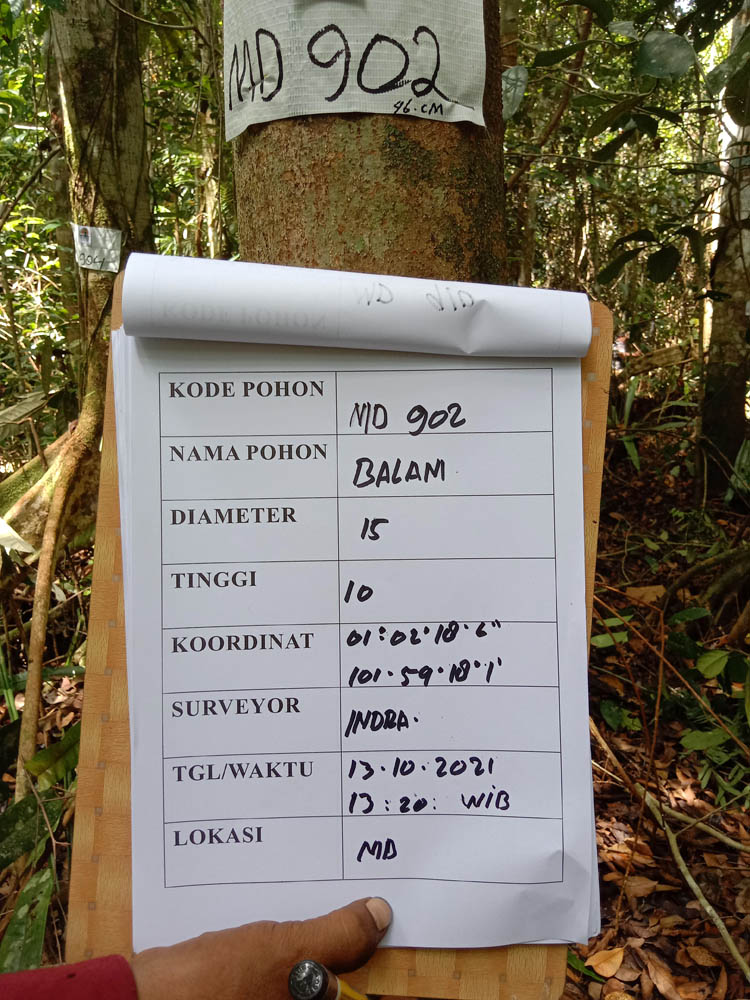 MD 902
46.CM
904
KODE POHON MD 902
NAMA POHON BALAM
DIAMETER 15
TINGGI 10
KOORDINAT 01:02·18·6"
101·59·18·1'
SURVEYOR INDRA.
TGL/WAKTU 13·10·2021
13:20: WIB
LOKASI MD